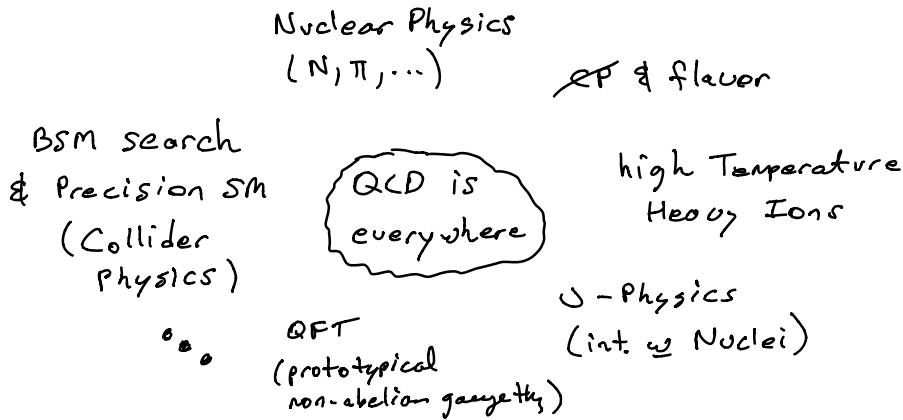 Nuclear Physics
(N, π, ...)
CP & flavor
BSM search
& Precision SM
(Collider
Physics)
QCD is
everywhere
high Temperature
Heavy Ions
ν - Physics
(int. w Nuclei)
QFT
(prototypical
non-abelian gauge thy)